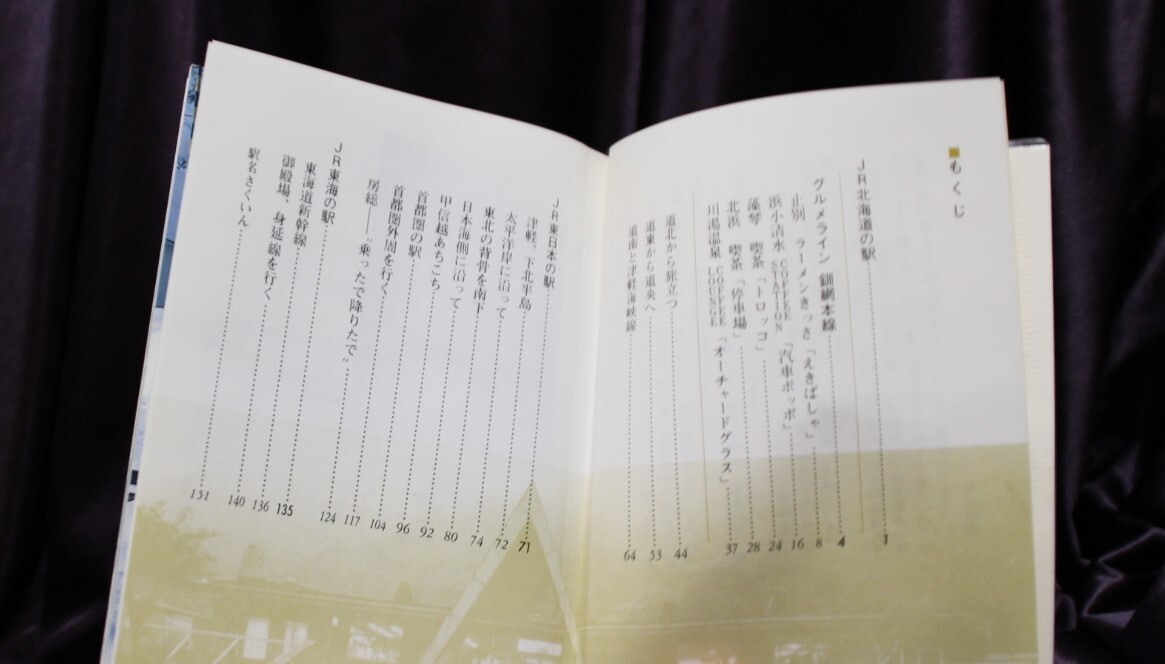 ■もくじ
JR北海道の駅……1
グルメライン 釧網本線……4
止別 ラーメンきっさ「えきばしゃ」……8
浜小清水 COFFEE STATION「汽車ポッポ」……16
藻琴 喫茶「トロッコ」……24
北浜 喫茶「停車場」……28
川湯温泉 COFFEE LOUNGE「オーチャードグラス」……37
道北から旅立つ……44
道東から道央へ……53
道南と津軽海峡線……64
JR東日本の駅……71
津軽、下北半島……72
太平洋岸に沿って……74
東北の背骨を南下……80
日本海側に沿って……92
甲信越あちこち……96
首都圏の駅……104
首都圏外周を行く……117
房総——“乗ったで降りたで”……124
JR東海の駅……135
東海道新幹線……136
御殿場、身延線を行く……140
駅名さくいん……151